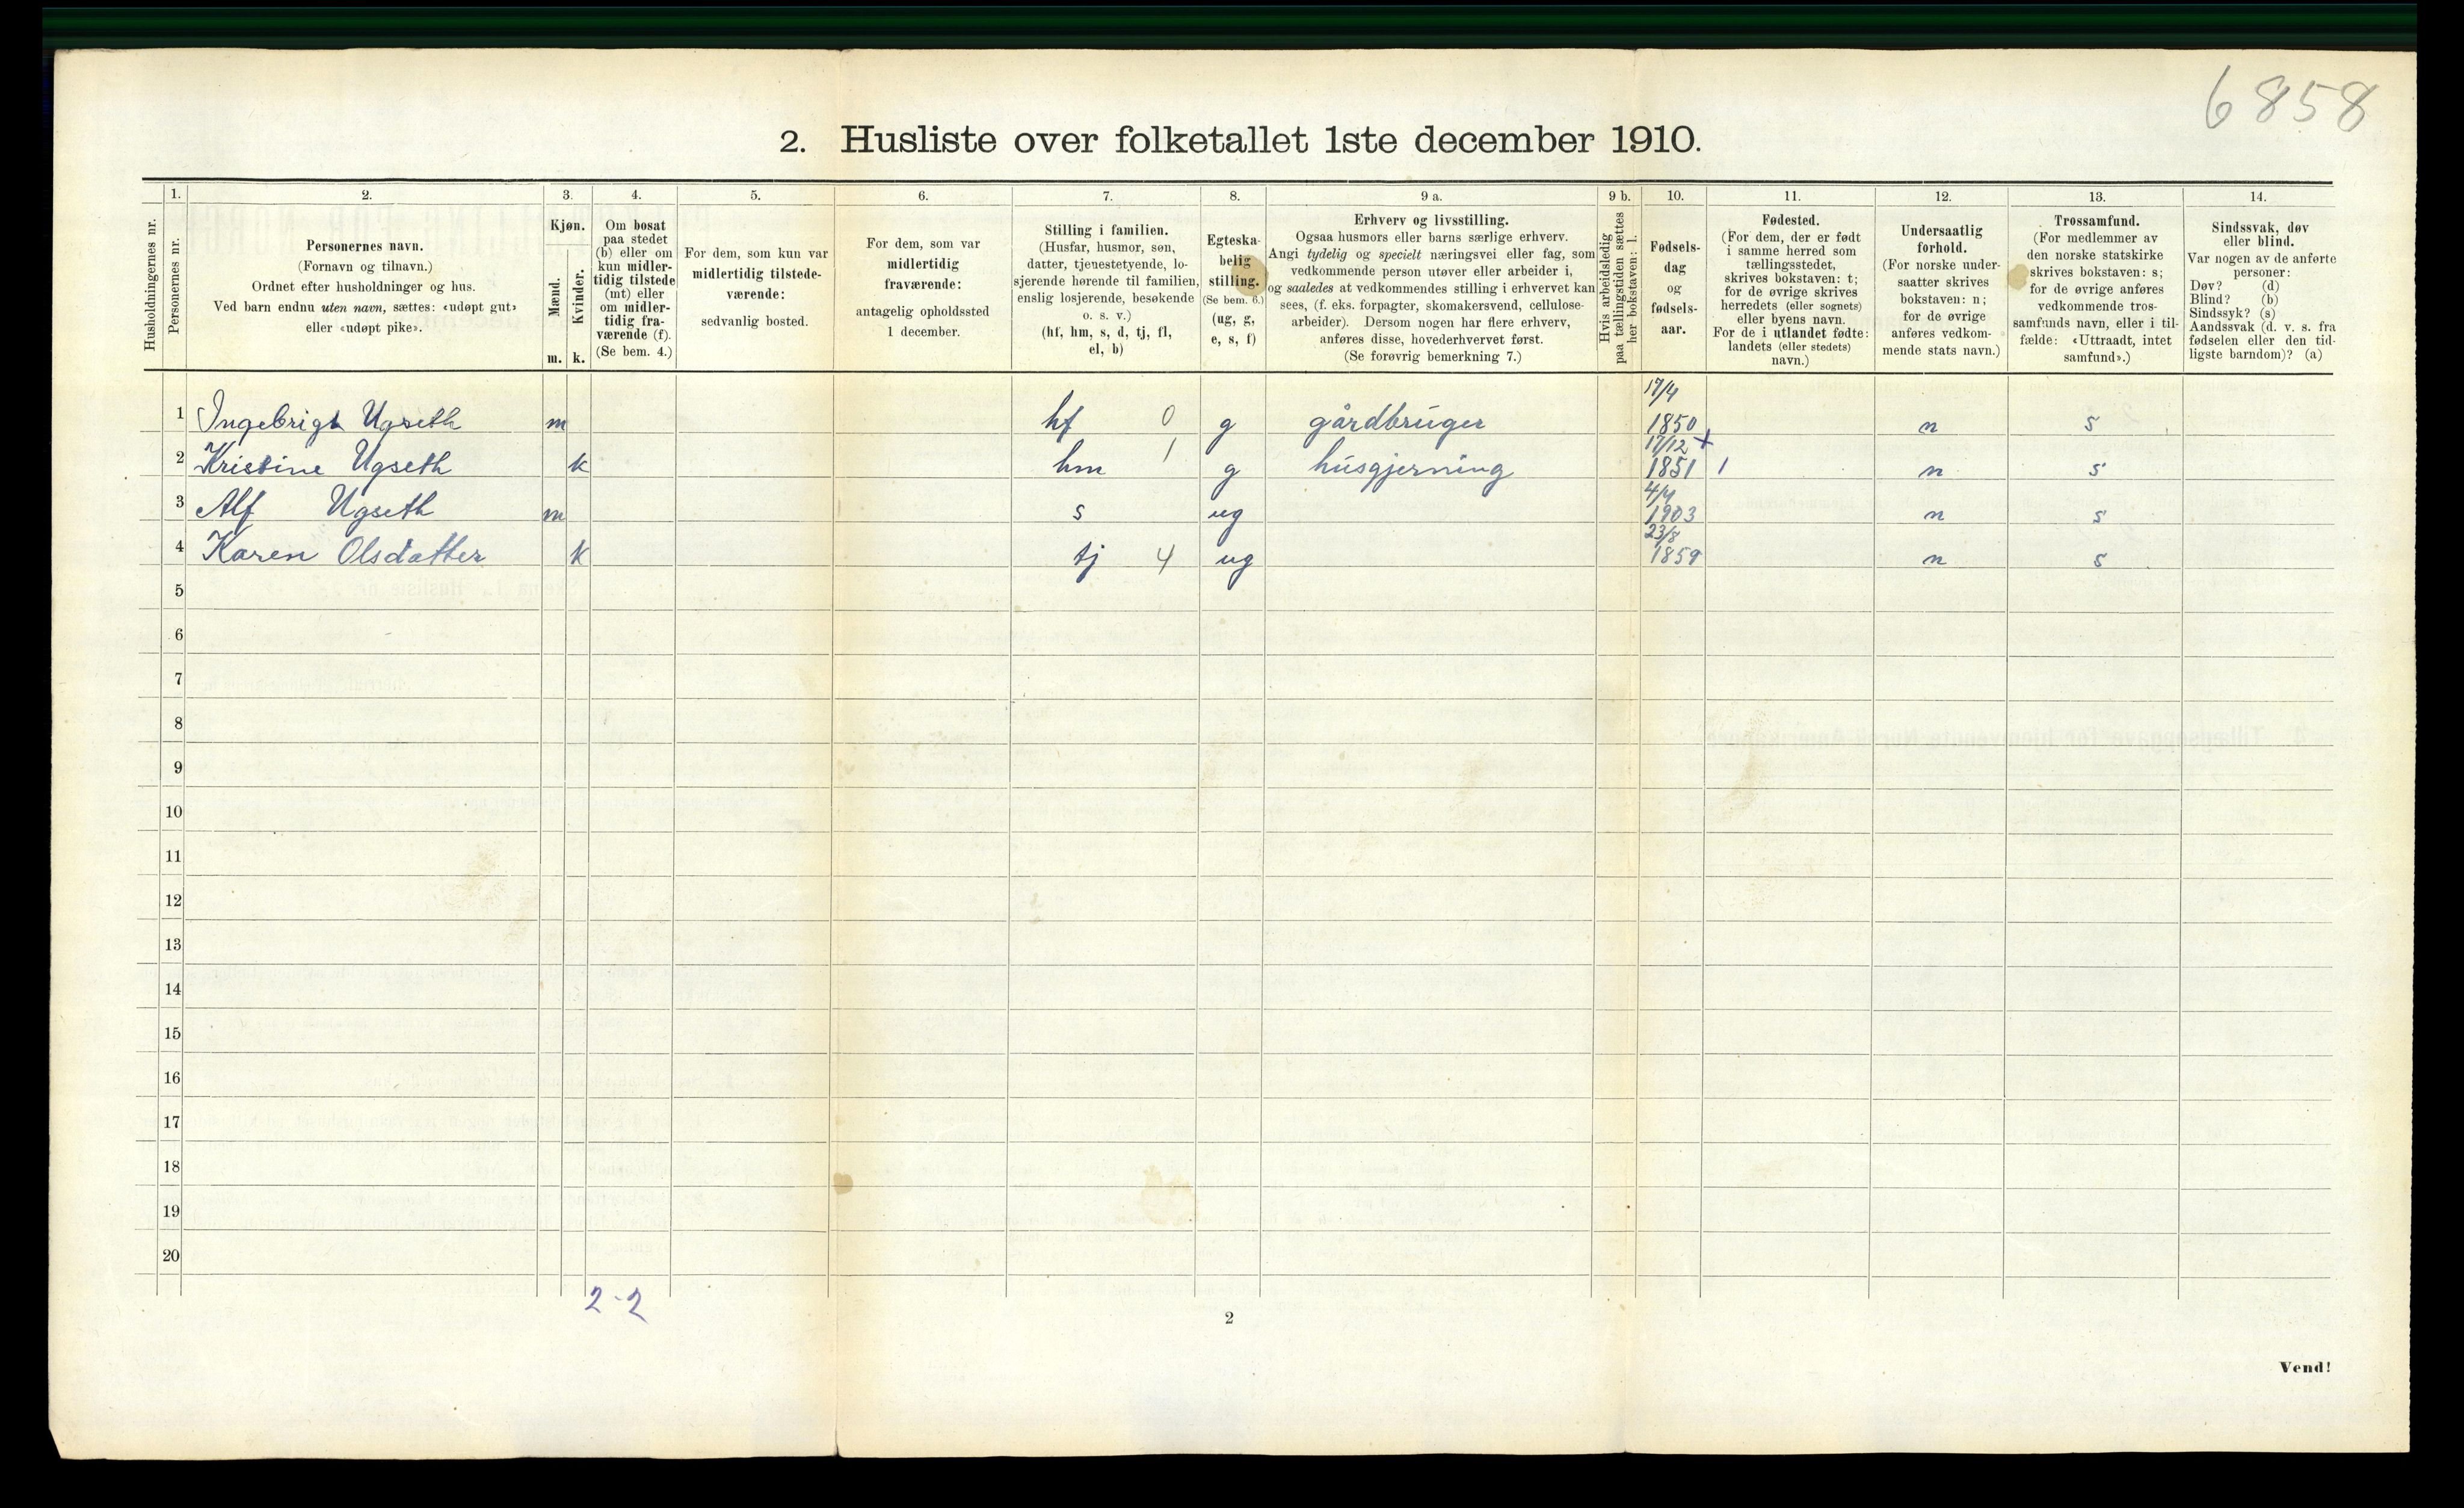 6858
2. Husliste over folketallet 1ste december 1910.
1. 2. 3. 4. 5. 6. 7. 8. 9 a. 9 b. 10. 11. 12. 13. 14.
Husholdningernes nr.
Personernes nr.
Personernes navn.
(Fornavn og tilnavn.)
Ordnet efter husholdninger og hus.
Ved barn endnu uten navn, sættes: «udøpt gut»
eller «udøpt pike».
Kjøn.
Mænd.
Kvinder.
m. k.
Om bosat
paa stedet
(b) eller om
kun midler-
tidig tilstede
(mt) eller
om midler-
tidig fra-
værende (f).
(Se bem. 4.)
For dem, som kun var
midlertidig tilstede-
værende:
sedvanlig bosted.
For dem, som var
midlertidig
fraværende:
antagelig opholdssted
1 december.
Stilling i familien.
(Husfar, husmor, søn,
datter, tjenestetyende, lo-
sjerende hørende til familien,
enslig losjerende, besøkende
o. s. v.)
(hf, hm, s, d, tj, fl,
el, b)
Egteska-
belig
stilling.
(Se bem. 6.)
(ug, g,
e, s, f)
Erhverv og livsstilling.
Ogsaa husmors eller barns særlige erhverv.
Angi tydelig og specielt næringsvei eller fag, som
vedkommende person utøver eller arbeider i,
og saaledes at vedkommendes stilling i erhvervet kan
sees, (f. eks. forpagter, skomakersvend, cellulose-
arbeider). Dersom nogen har flere erhverv,
anføres disse, hovederhvervet først.
(Se forøvrig bemerkning 7.)
Hvis arbeidsledig
paa tællingstiden sættes
her bokstaven: l.
Fødsels-
dag
og
fødsels-
aar.
Fødested.
(For dem, der er født
i samme herred som
tællingsstedet,
skrives bokstaven: t;
for de øvrige skrives
herredets (eller sognets)
eller byens navn.
For de i utlandet fødte:
landets (eller stedets)
navn.)
Undersaatlig
forhold.
(For norske under-
saatter skrives
bokstaven: n;
for de øvrige
anføres vedkom-
mende stats navn.)
Trossamfund.
(For medlemmer av
den norske statskirke
skrives bokstaven: s;
for de øvrige anføres
vedkommende tros-
samfunds navn, eller i til-
fælde: «Uttraadt, intet
samfund».)
Sindssvak, døv
eller blind.
Var nogen av de anførte
personer:
Døv? (d)
Blind? (b)
Sindssyk? (s)
Aandssvak (d. v. s. fra
fødselen eller den tid-
ligste barndom)? (a)
17/4
1 Ingebrigt Ugseth m hf 0 g gårdbruger 1850 n s
17/12 +
2 Kristine Ugseth k hm 1 g husgjerning 1851 1 n s
4/4
3 Alf Ugseth m s ug 1903 n s
23/8
4 Karen Olsdatter k tj 4 ug 1859 n s
5
6
7
8
9
10
11
12
13
14
15
16
17
18
19
20
2-2
2
Vend!